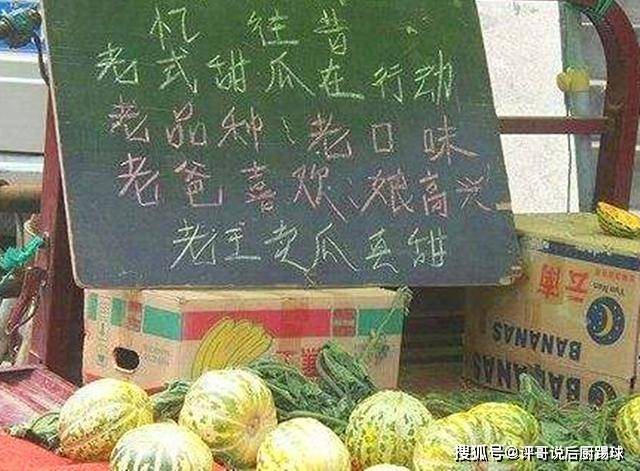 忆往昔
老式甜瓜在行动
老品种、老口味
老爸喜欢、娘高兴
老王卖瓜真甜
云南
Yun Nan
BANANAS
BANANAS
搜狐号@评哥说后厨踢球